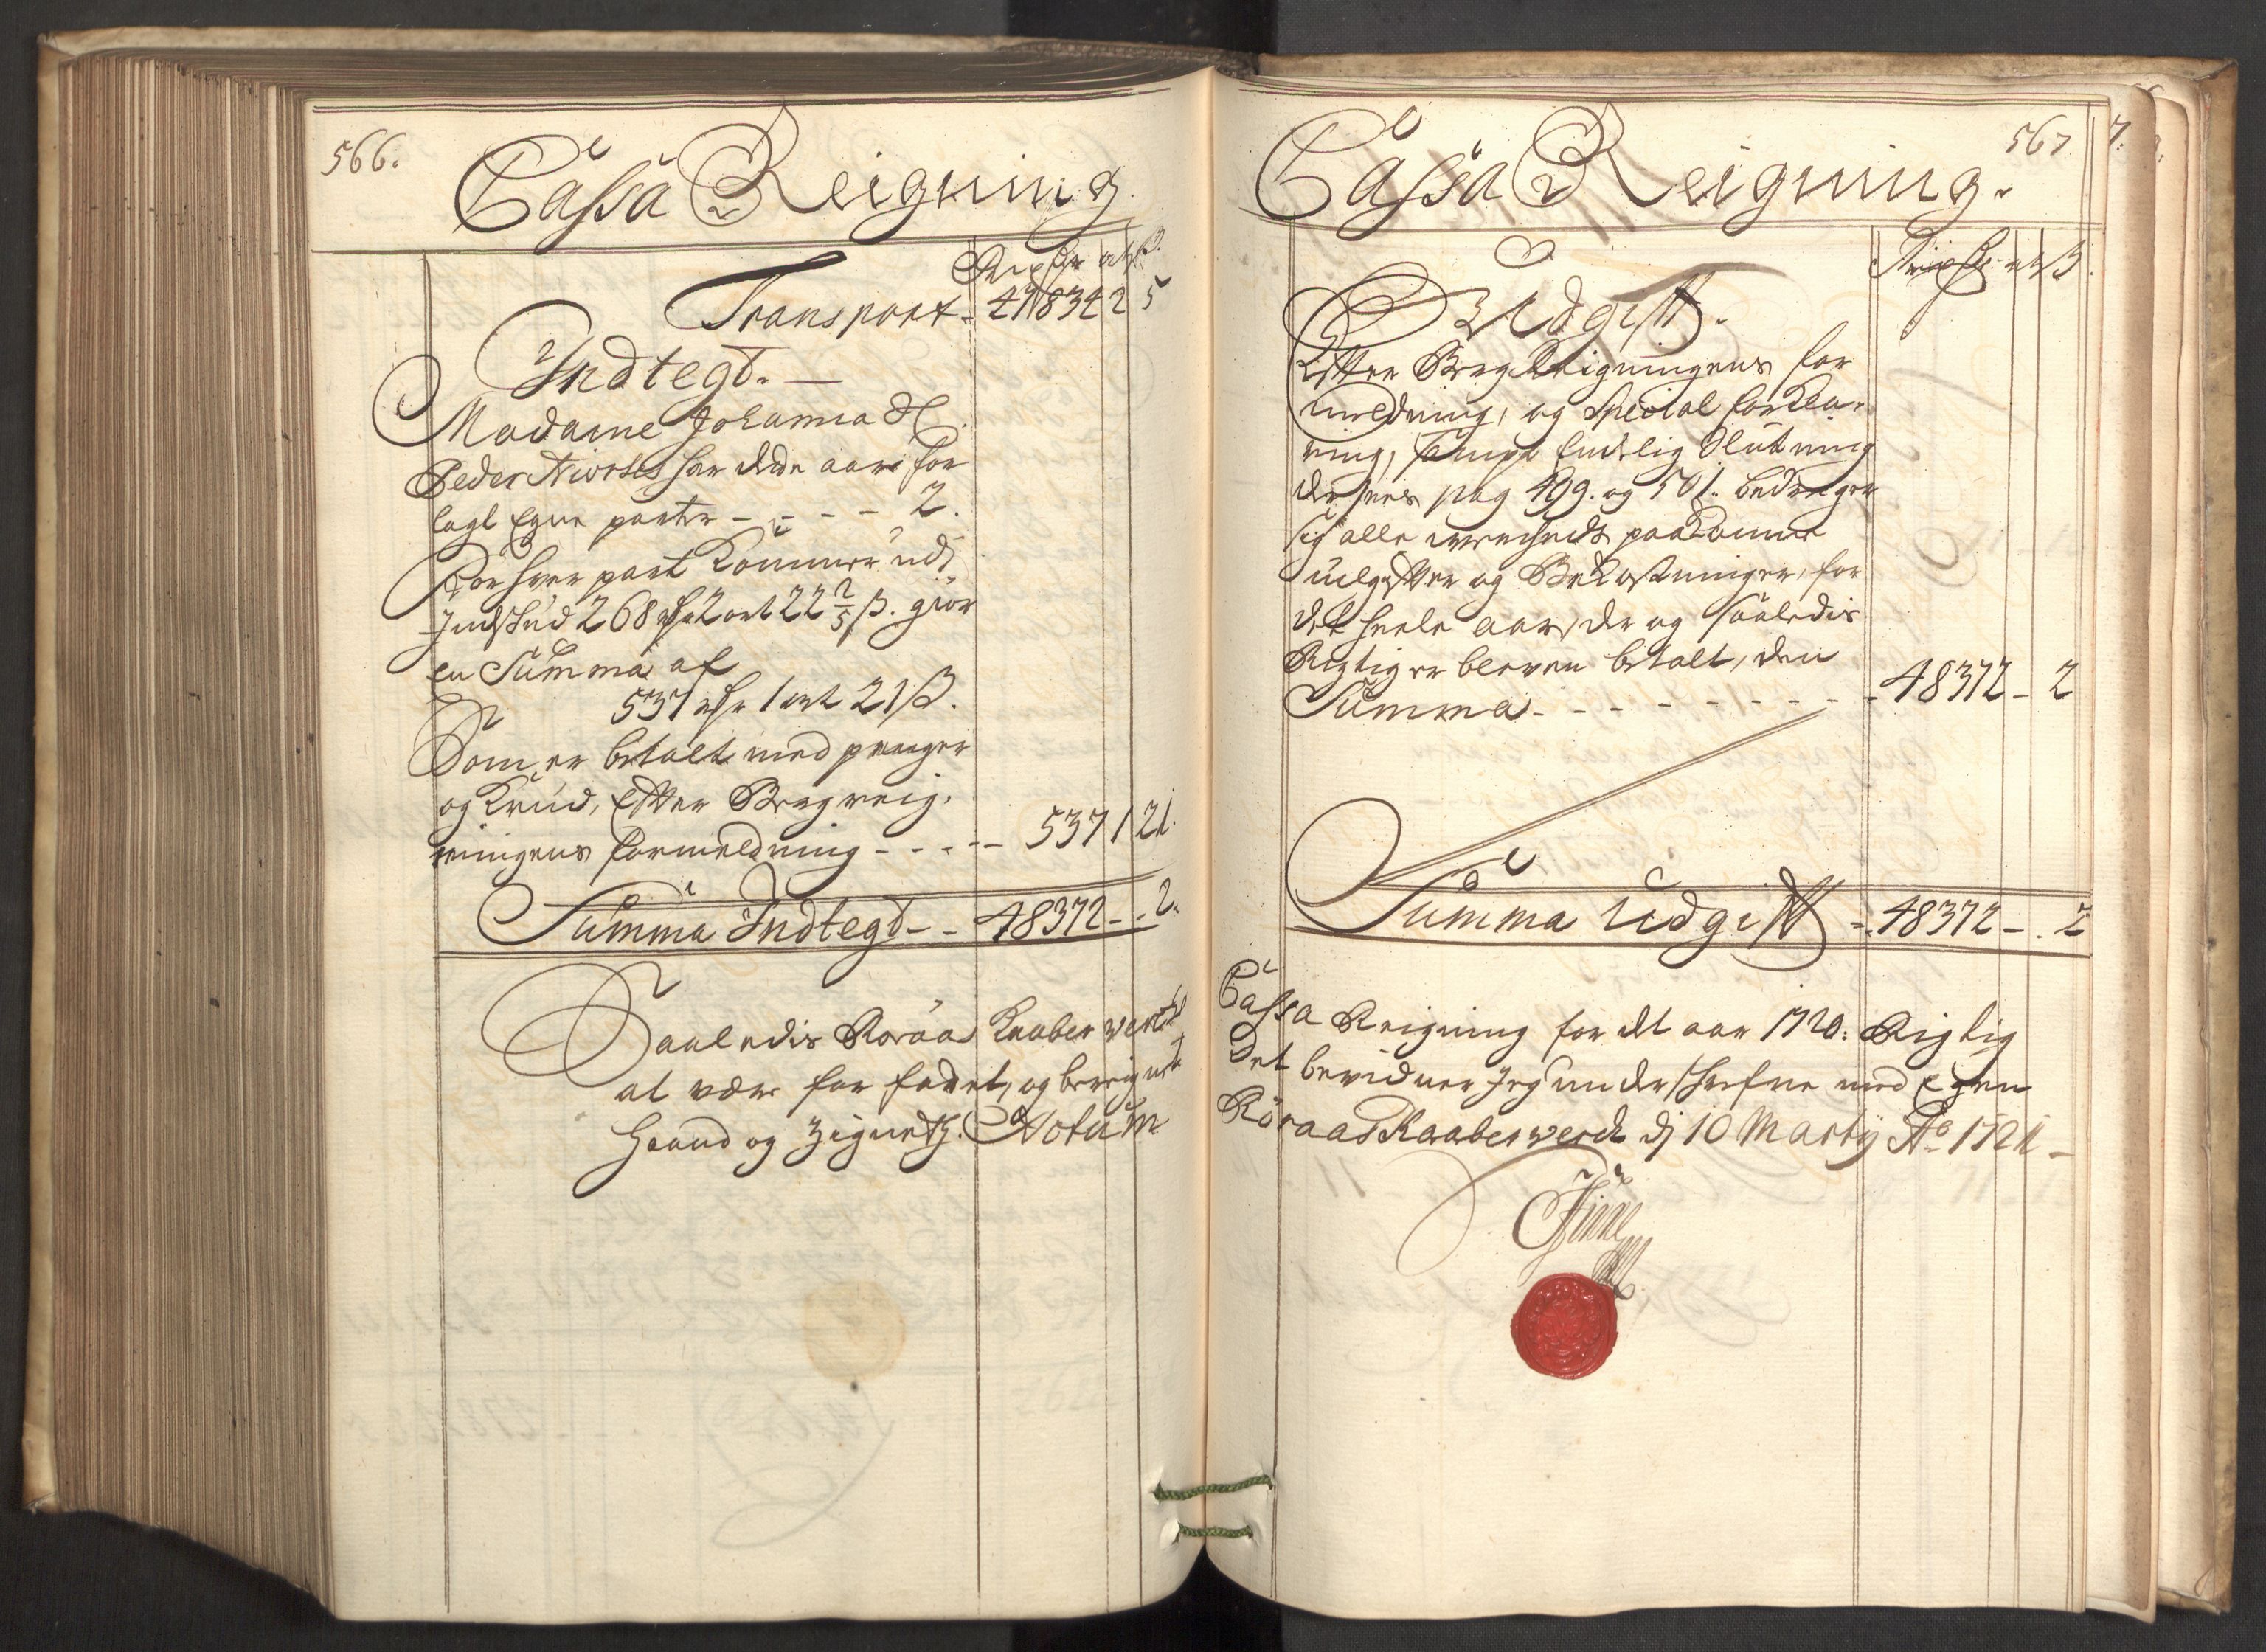 566.
Cassa Reigning.
Rixdr ort ß.
Transport - 47834 2 5
Indtegt. —
Madame Johanna Sl
Peder Niorbes har dette aar for
lagt Egne parter - - - - 2.
For hver part kommer udj
Indskud 268 rdr 2 ort 22 2/5 ß. giör
en Summa af
537 rdr 1 ort 21 ß.
Som er betalt med penger
og Krud, Efter Bergreig-
ningens formeldning - - - - - 537 1 21.
Summa Indtegt - - 48372 - . 2.
Saaledis Röraas Kaaber verck
at være for faret, og bereignet
Haand og Zignete. Actum
567
7.
Cassa Reigning.
Rixdr ort ß.
Udgift.
Efter Berg Reigningens for
meldning, og Special forkla-
ring, sampt Endelig Slutning
der sees pag 499. og 501. bedrager
sig alle værckets paakomne
udgifter og Bekostninger, for
det heele aar, der og saaledis
Rigtig er bleven betalt, den
Summa - - - - - - - - 48372 - 2
Summa Udgift - 48372 - . 2
Cassa Reigning for det aar 1720: Rigtig
Det bevidner Jeg underskrefne med Egen
Röraas Kaaberverck dj 10 Martij Ao 1721 -